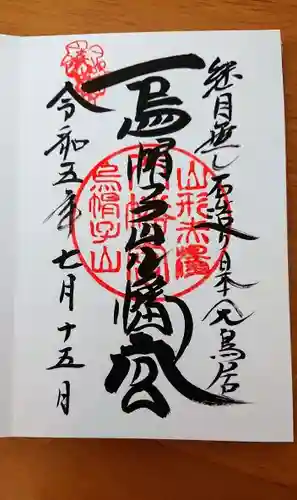 継目無し石造り日本一大鳥居
烏帽子山八幡宮
令和五年七月十五日
山形赤湯
烏帽子山